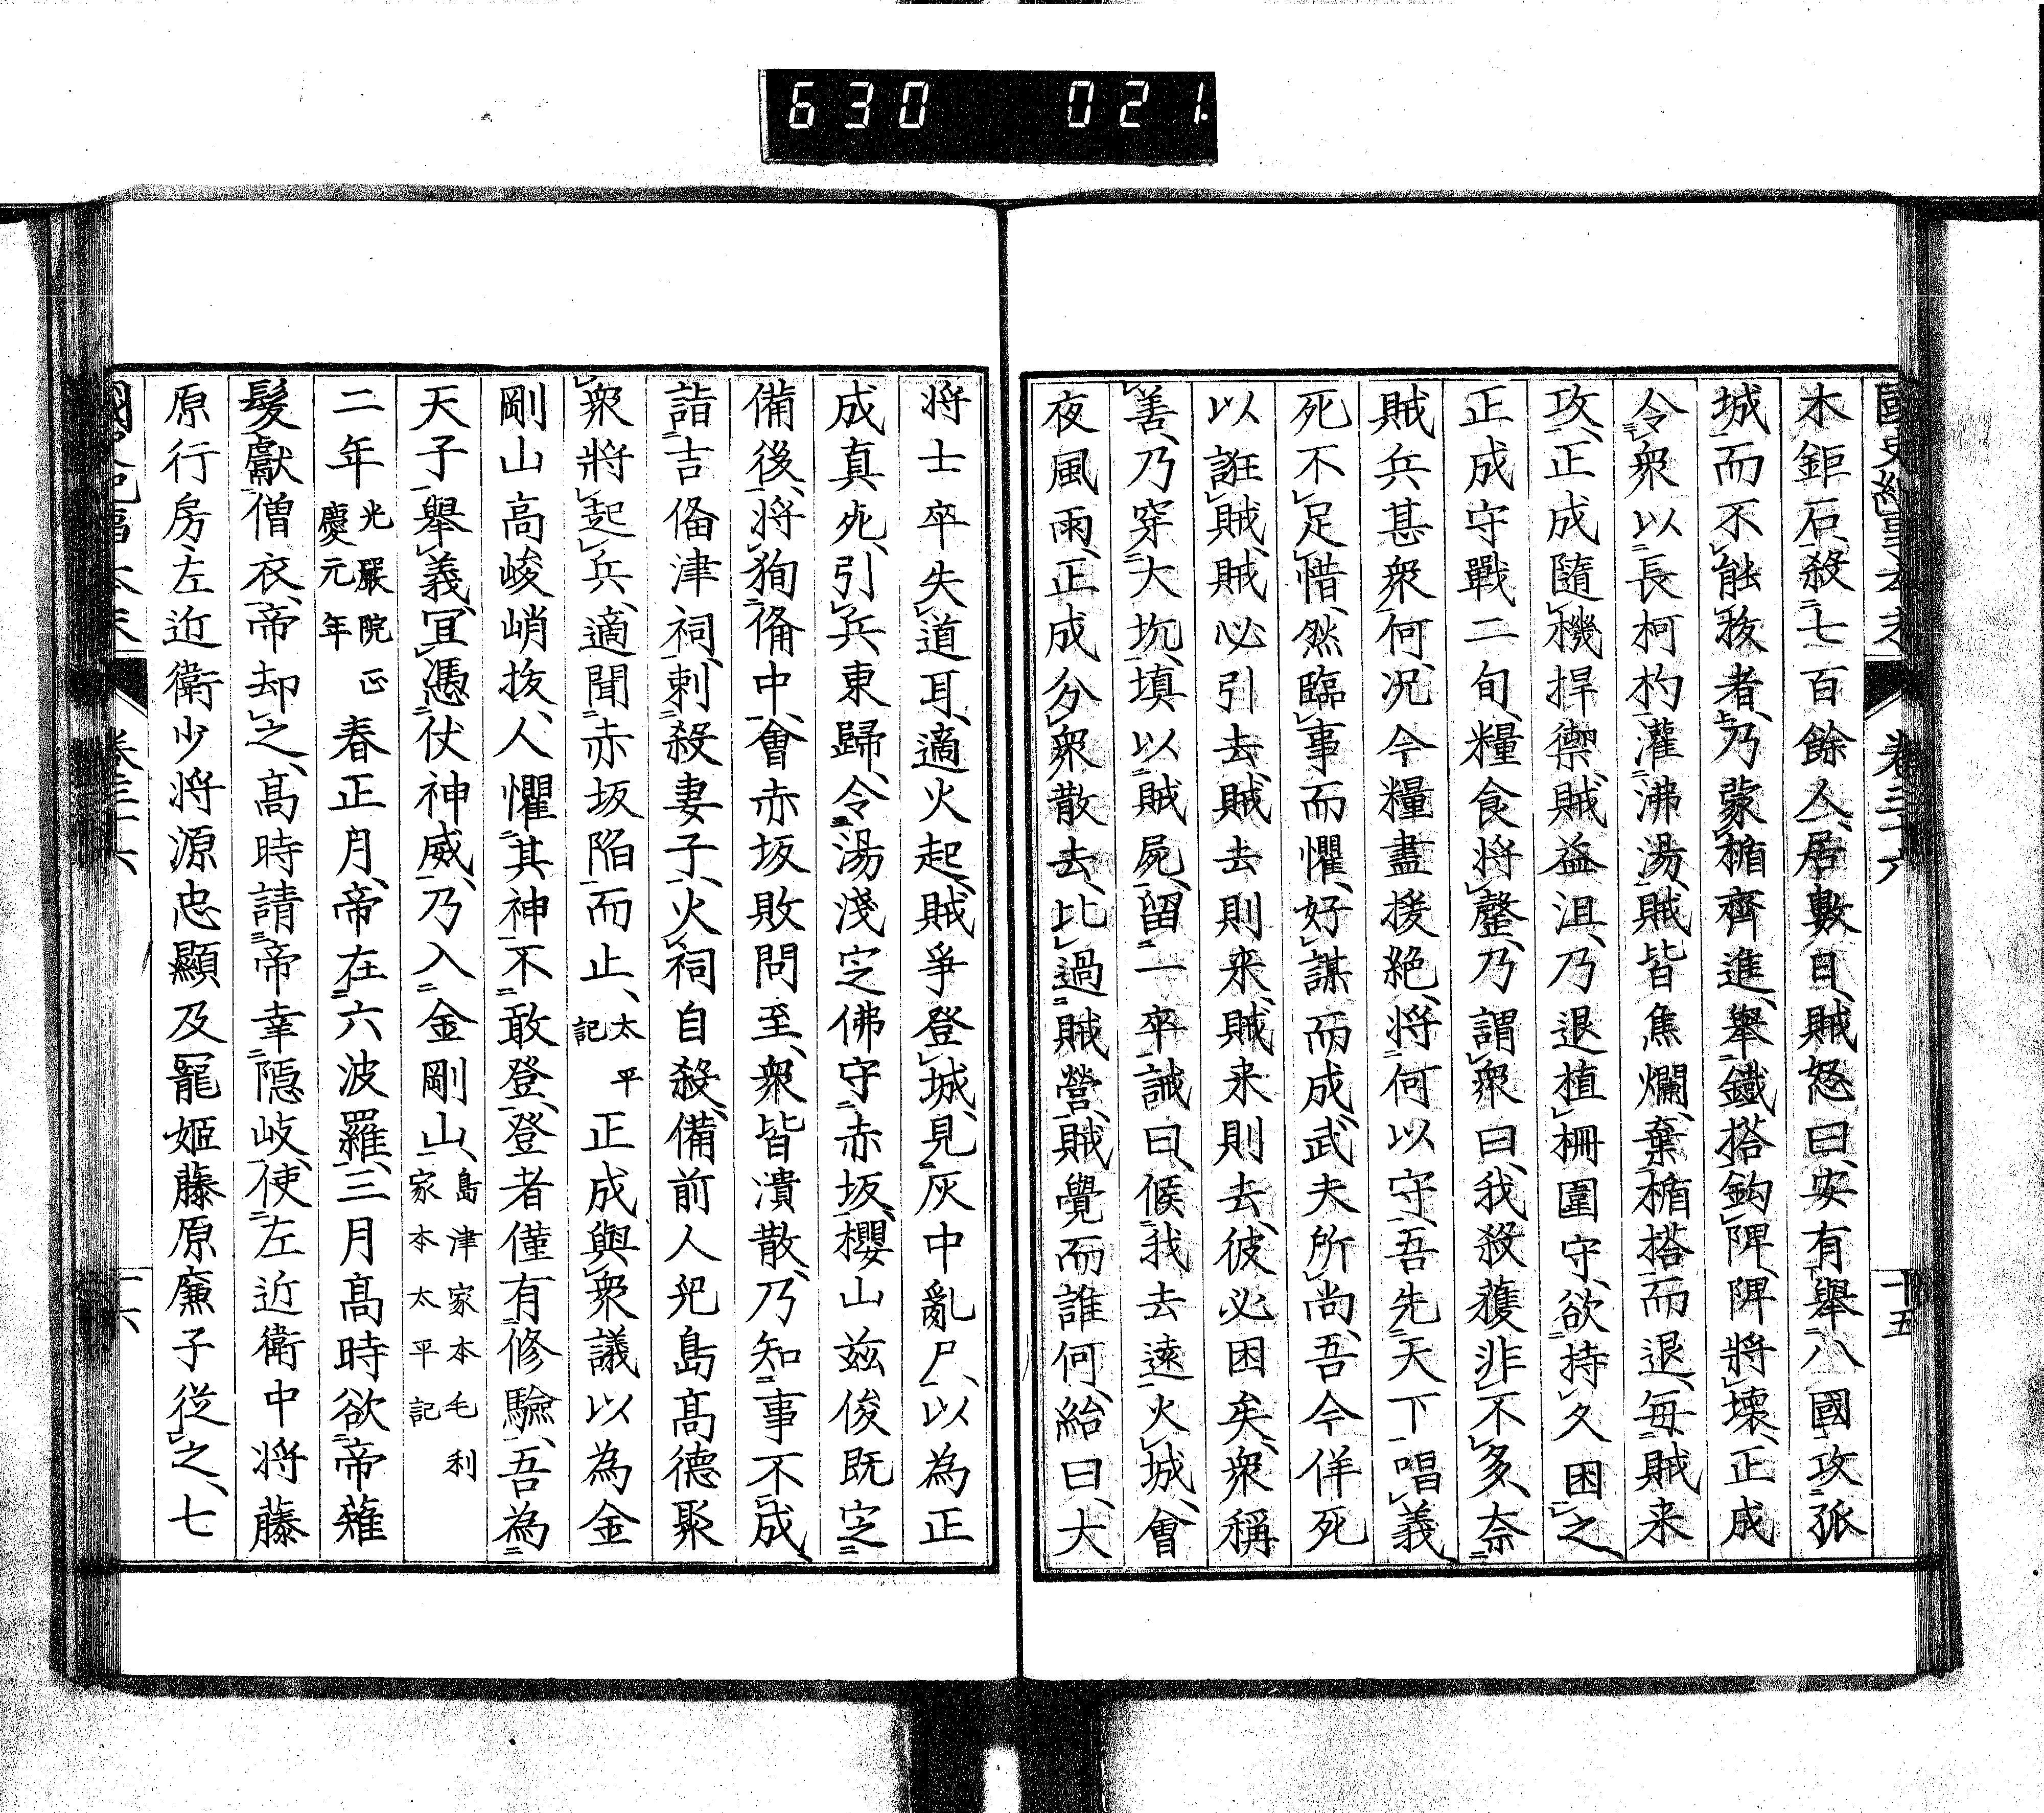 630 021.
國史紀事本末 卷三十六 十五
木鉅石、殺七百餘人、居數日、賊怒曰、安有舉八國攻孤
城而不能拔者、乃蒙楯齊進、舉鐵搭鈎陴、陴將壞、正成
令衆以長柯杓灌沸湯、賊皆焦爛、棄楯搭而退、每賊来
攻、正成隨機捍禦、賊益沮、乃退植柵圍守、欲持久困之、
正成守戰二旬、糧食將罄、乃謂衆曰、我殺獲非不多、奈
賊兵甚衆何、況今糧盡援絶、將何以守、吾先天下唱義、
死不足惜、然臨事而懼、好謀而成、武夫所尚、吾今佯死
以誑賊、賊必引去、賊去則来、賊来則去、彼必困矣、衆稱
善、乃穿大坑、填以賊屍、留一卒、誡曰、候我去遠火城、會
夜風雨、正成分衆散去、比過賊營、賊覺而誰何、紿曰、大
将士卒失道耳、適火起、賊爭登城、見灰中亂尸、以為正
成真死、引兵東歸、令湯淺定佛守赤坂、櫻山茲俊既定
備後、将狥備中、會赤坂敗問至、衆皆潰散、乃知事不成、
詣吉備津祠、刺殺妻子、火祠自殺、備前人兒島高德聚
衆將起兵、適聞赤坂陷而止、太平記 正成與衆議以為金
剛山高峻峭拔、人懼其神、不敢登、登者僅有修驗、吾為
天子舉義、宜憑仗神威、乃入金剛山、島津家本毛利家本太平記
二年光嚴院正慶元年 春正月、帝在六波羅、三月高時欲帝薙
髮、獻僧衣、帝却之、高時請帝幸隱岐、使左近衛中将藤
原行房、左近衛少将源忠顯及寵姬藤原廉子從之、七
國史紀事本末 卷三十六 十六